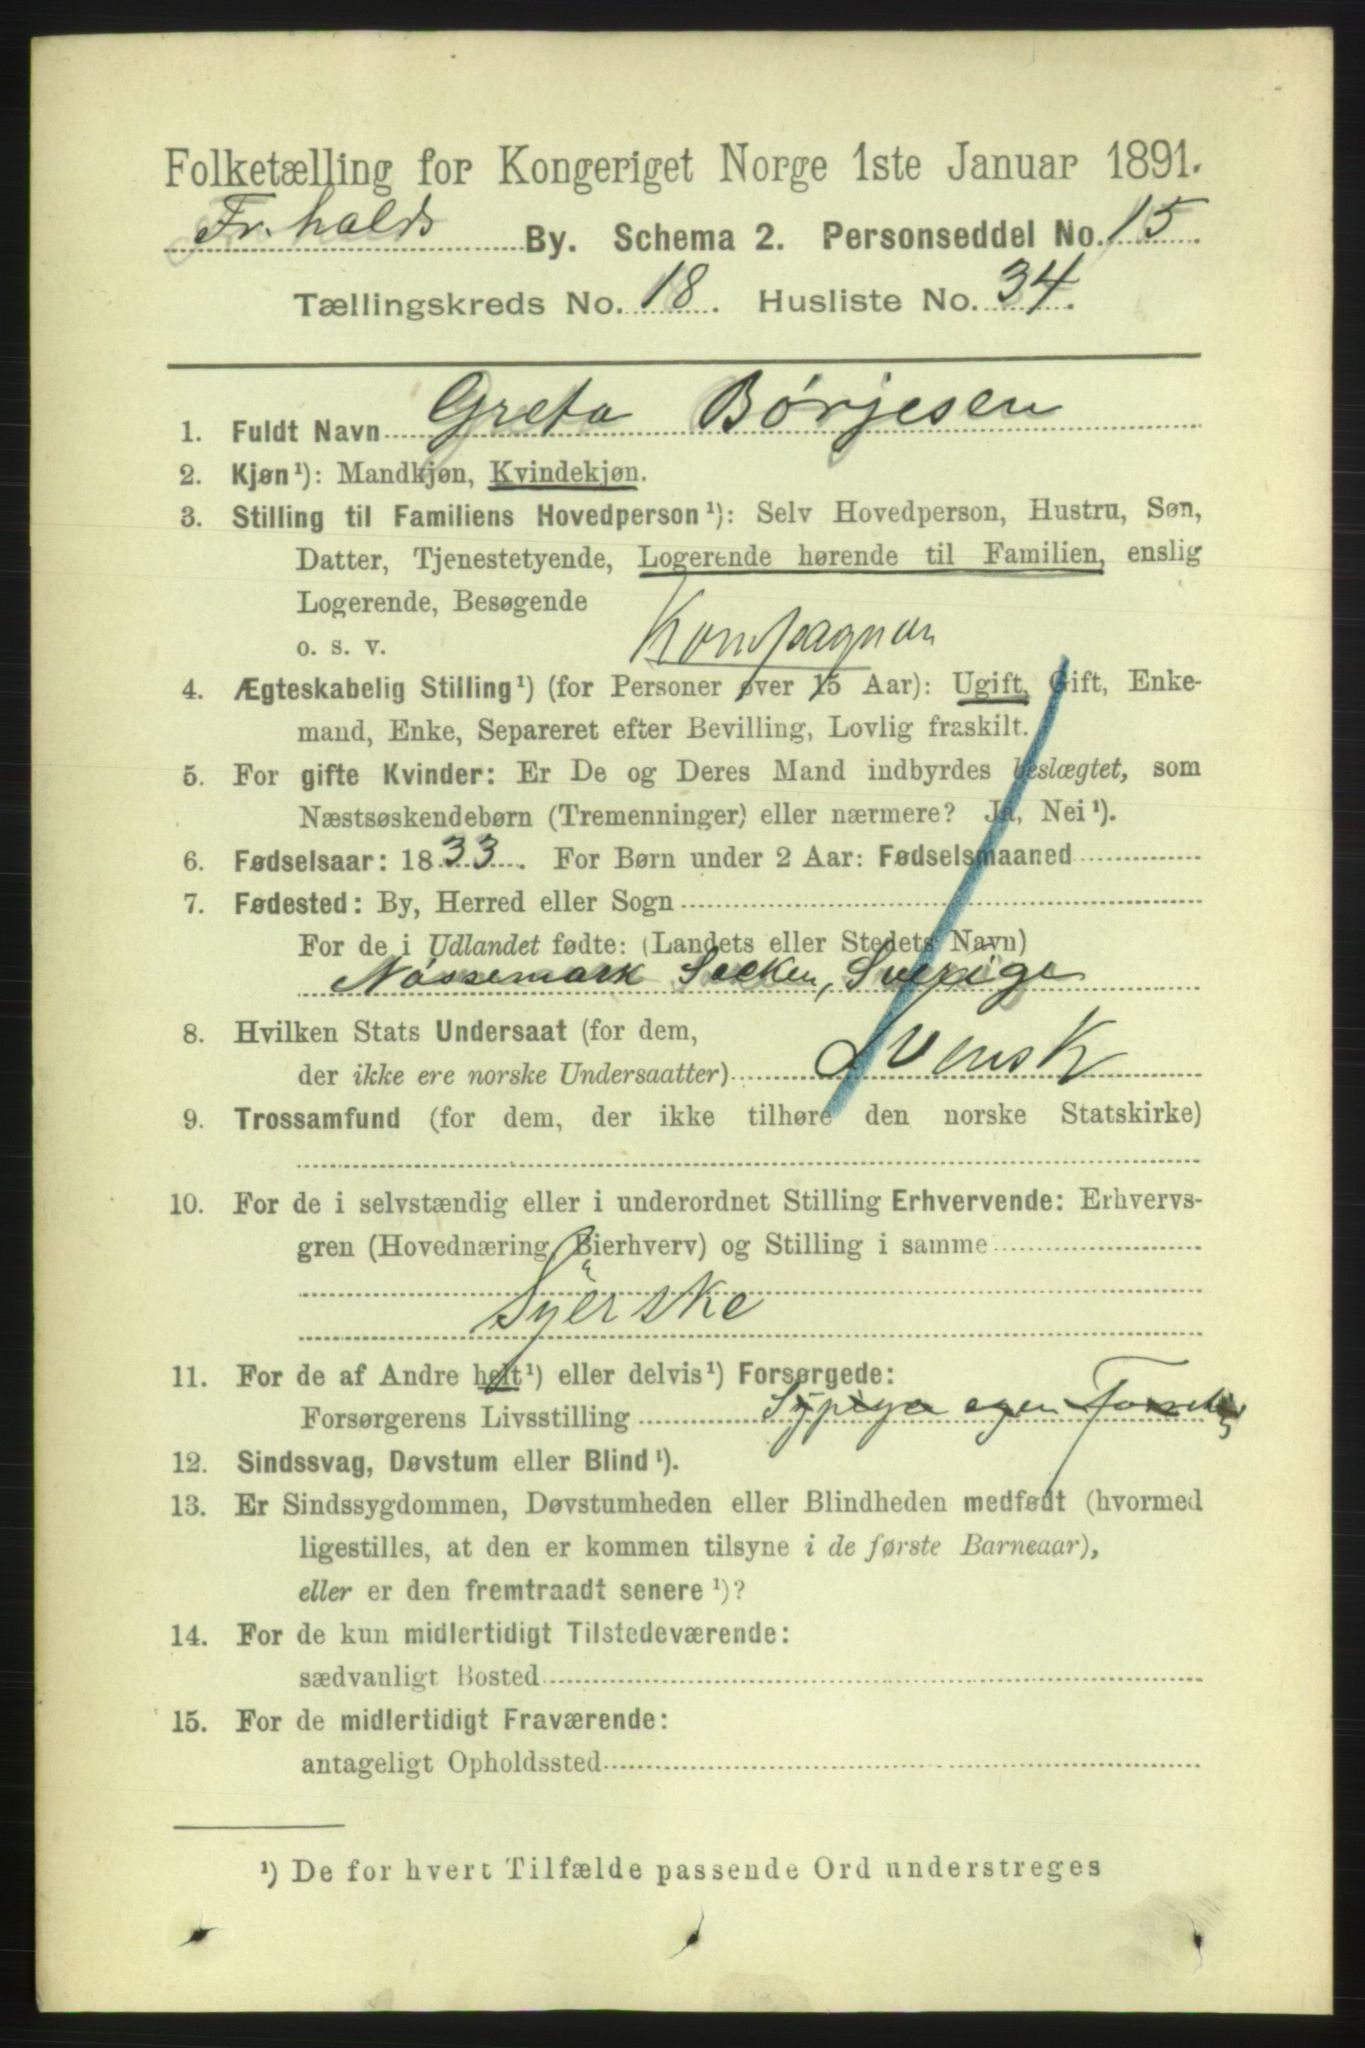 Folketælling for Kongeriget Norge 1ste Januar 1891.
Fr.halds By. Schema 2. Personseddel No. 15
Tællingskreds No. 18. Husliste No. 34.
1. Fuldt Navn Greta Børjesen
2. Kjøn¹): Mandkjøn, Kvindekjøn.
3. Stilling til Familiens Hovedperson¹): Selv Hovedperson, Hustru, Søn,
Datter, Tjenestetyende, Logerende hørende til Familien, enslig
Logerende, Besøgende
o. s. v. Kompagnon
4. Ægteskabelig Stilling¹) (for Personer over 15 Aar): Ugift, Gift, Enke-
mand, Enke, Separeret efter Bevilling, Lovlig fraskilt.
5. For gifte Kvinder: Er De og Deres Mand indbyrdes beslægtet, som
Næstsøskendebørn (Tremenninger) eller nærmere? Ja, Nei¹).
6. Fødselsaar: 1833. For Børn under 2 Aar: Fødselsmaaned
7. Fødested: By, Herred eller Sogn
For de i Udlandet fødte: (Landets eller Stedets Navn)
Nössemark Socken, Sverige
8. Hvilken Stats Undersaat (for dem,
der ikke ere norske Undersaatter) Svensk
9. Trossamfund (for dem, der ikke tilhøre den norske Statskirke)
10. For de i selvstændig eller i underordnet Stilling Erhvervende: Erhvervs-
gren (Hovednæring, Bierhverv) og Stilling i samme
Syerske
11. For de af Andre helt¹) eller delvis¹) Forsørgede:
Forsørgerens Livsstilling Sypige egen
12. Sindssvag, Døvstum eller Blind¹).
13. Er Sindssygdommen, Døvstumheden eller Blindheden medfødt (hvormed
ligestilles, at den er kommen tilsyne i de første Barneaar),
eller er den fremtraadt senere¹)?
14. For de kun midlertidigt Tilstedeværende:
sædvanligt Bosted
15. For de midlertidigt Fraværende:
antageligt Opholdssted
¹) De for hvert Tilfælde passende Ord understreges